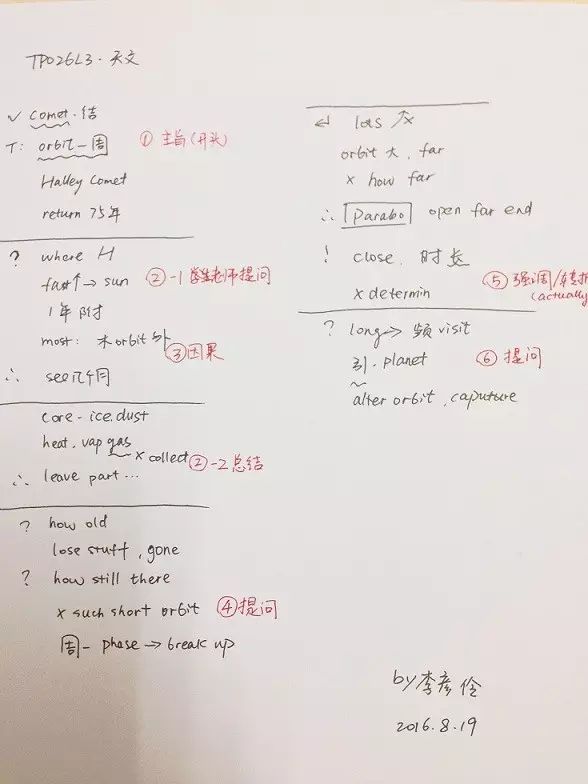 TPO26L3·天文
✓ comet·结
T: orbit - 周 ① 主旨(开头)
Halley Comet
return 75年
? where H
fast↑→ sun ②-1 学生老师提问
1年 附
most: 木orbit外
③因果
∴ see几个月
core - ice.dust
heat. vap gas
x collect ②-2 总结
∴ leave part ...
? how old
lose stuff, gone
? how still there
x such short orbit ④提问
周- phase → break up
↵ lots 个x
orbit 大, far
x how far
∴ Parabo open far end
! close. 时长
⑤ 强调/转折
x determin (actually)
? long→ 频 visit
引·planet ⑥ 提问
alter orbit, caputure
by李彦伶
2016.8.19